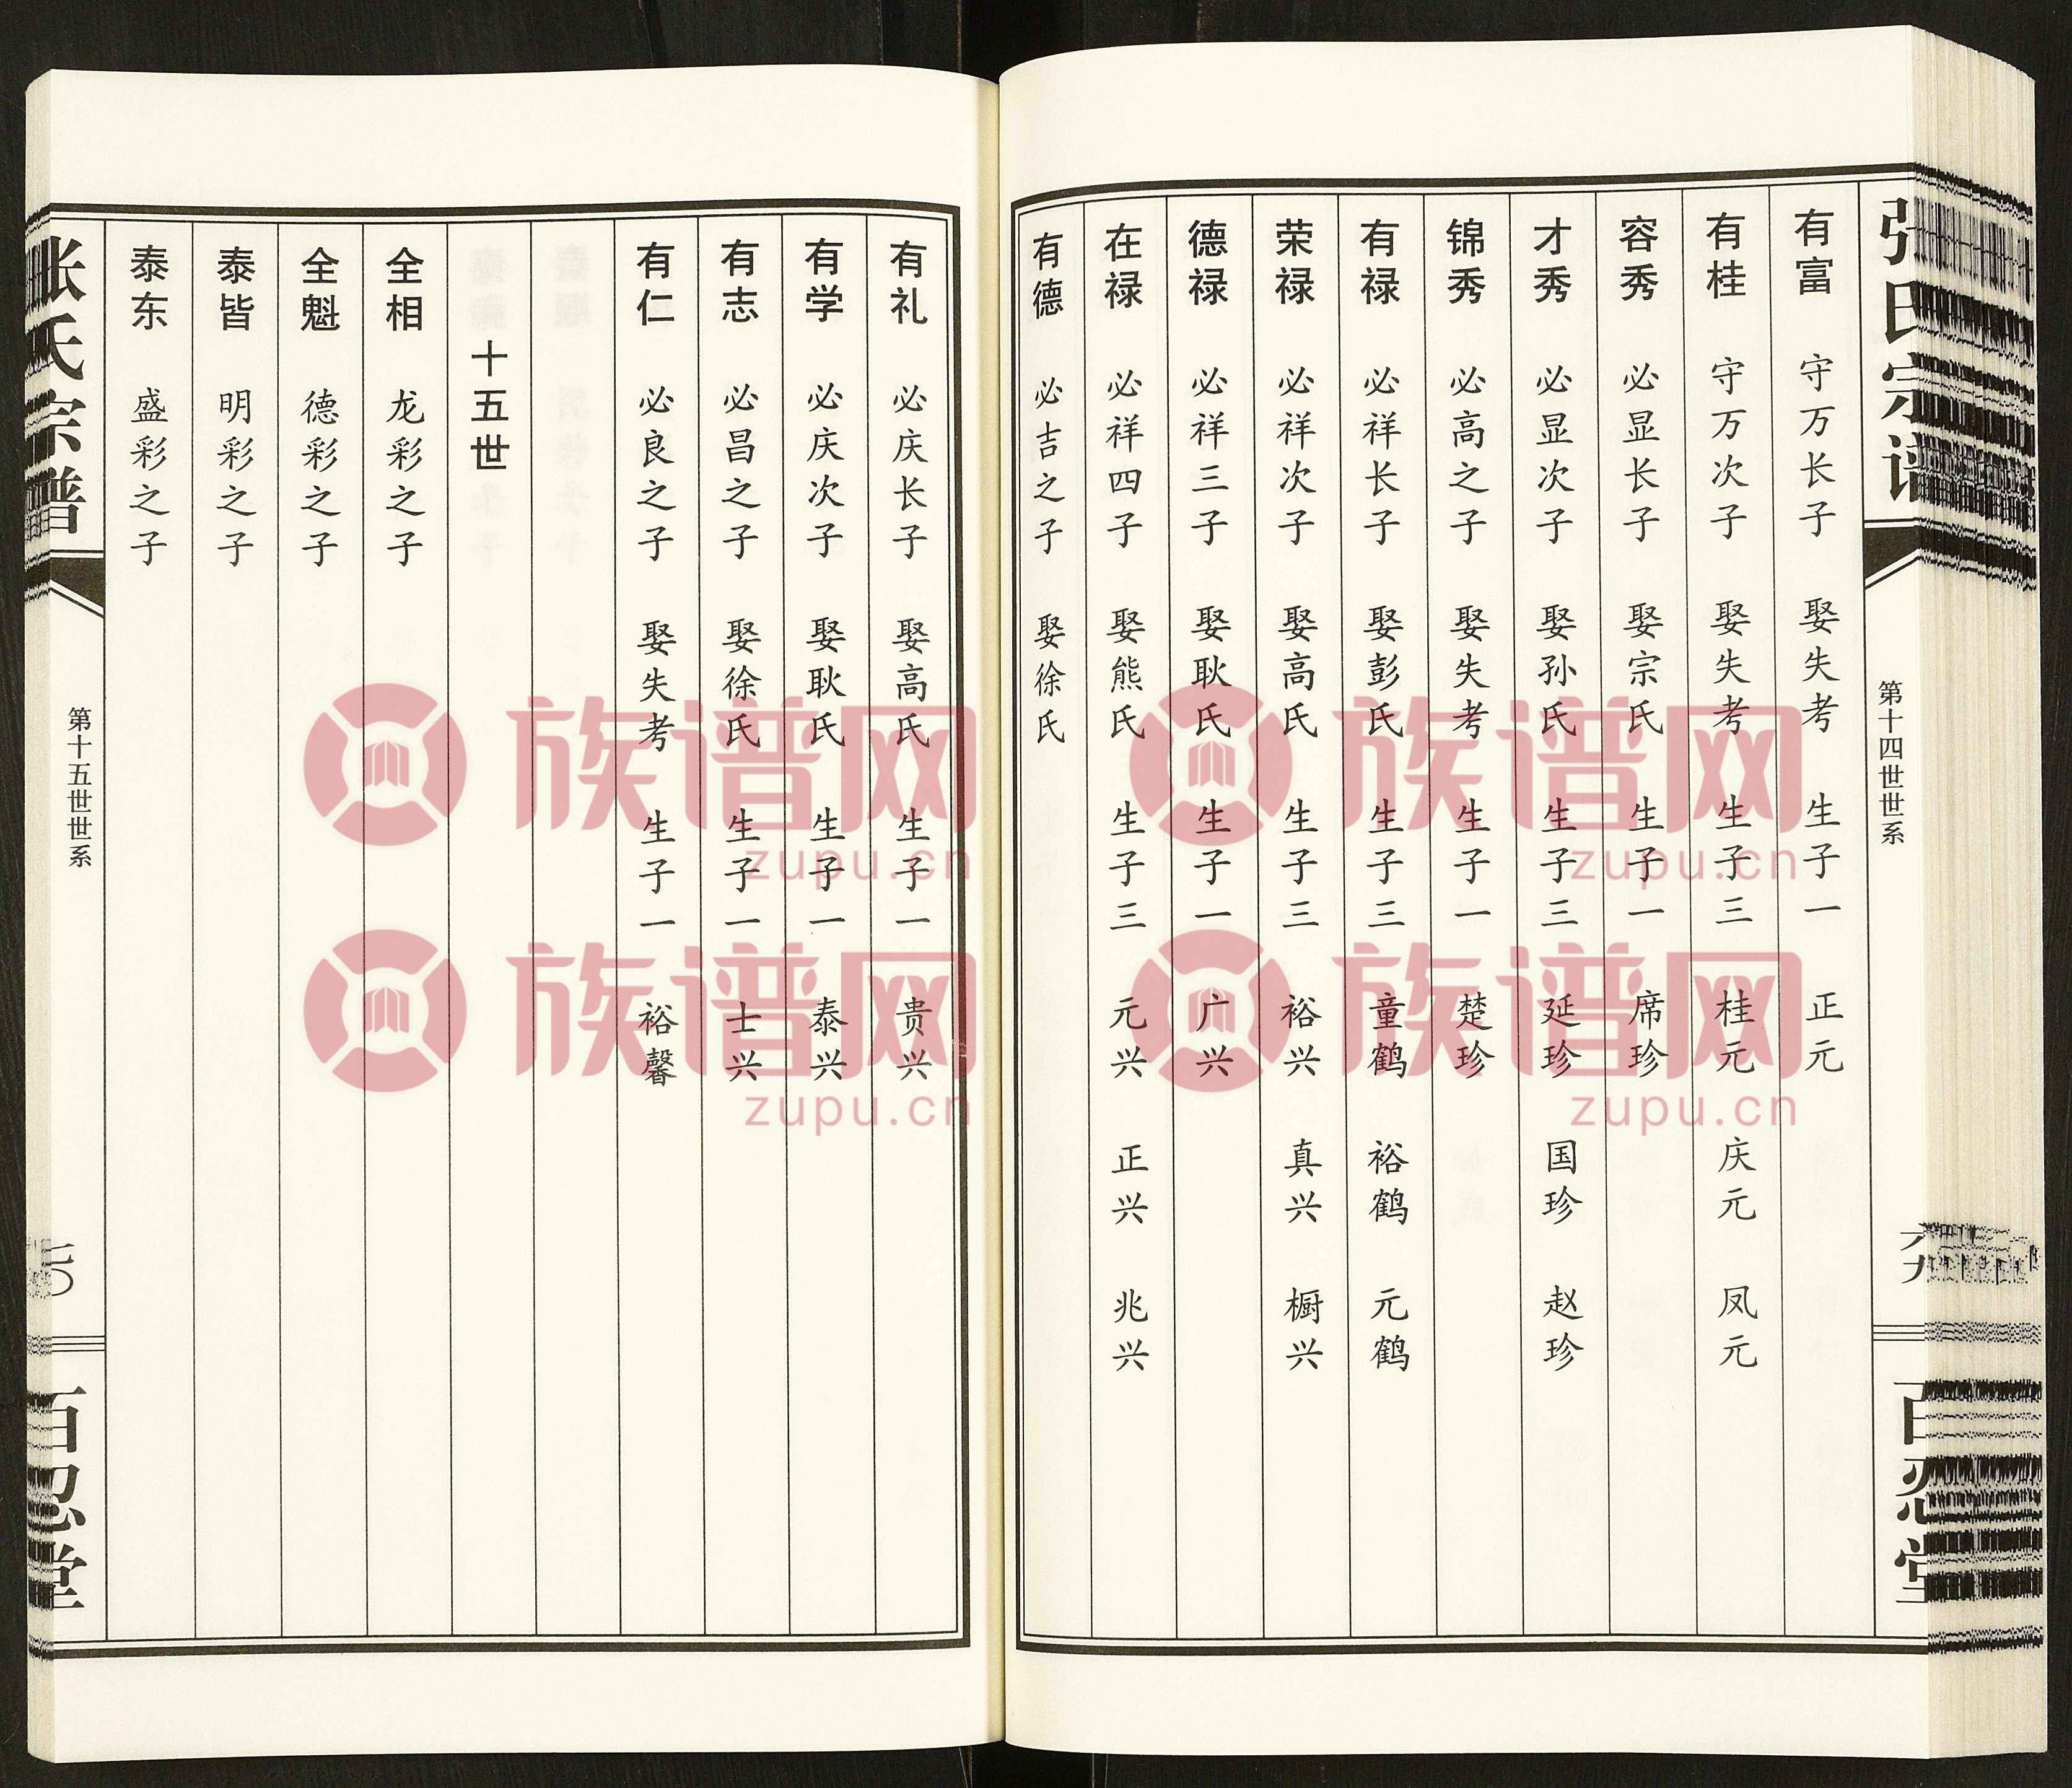 张氏宗谱
第十四世世系
六九
百忍堂
有富 守万长子 娶失考 生子一 正元
有桂 守万次子 娶失考 生子三 桂元 庆元 凤元
容秀 必显长子 娶宗氏 生子一 席珍
才秀 必显次子 娶孙氏 生子三 延珍 国珍 赵珍
锦秀 必高之子 娶失考 生子一 楚珍
有禄 必祥长子 娶彭氏 生子三 童鹤 裕鹤 元鹤
荣禄 必祥次子 娶高氏 生子三 裕兴 真兴 橱兴
德禄 必祥三子 娶耿氏 生子一 广兴
在禄 必祥四子 娶熊氏 生子三 元兴 正兴 兆兴
有德 必吉之子 娶徐氏
有礼 必庆长子 娶高氏 生子一 贵兴
有学 必庆次子 娶耿氏 生子一 泰兴
有志 必昌之子 娶徐氏 生子一 士兴
有仁 必良之子 娶失考 生子一 裕馨
十五世
全相 龙彩之子
全魁 德彩之子
泰皆 明彩之子
泰东 盛彩之子
张氏宗谱
第十五世世系
七〇
百忍堂
族谱网
zupu.cn
族谱网
zupu.cn
族谱网
zupu.cn
族谱网
zupu.cn